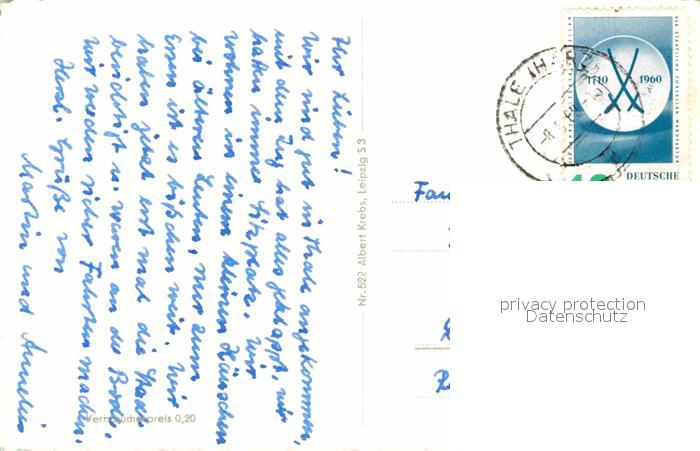 Ihr Lieben!
Wir sind gut in Thale angekommen,
mit dem Zug hat alles geklappt, wir
hatten immer Sitzplatz. Wir
wohnen in einem kleinen Häuschen
bei älteren Leuten, nur zum
Essen ist es bißchen weit. Wir
haben jetzt erst mal die Stadt
besichtigt u. waren an der Bode.
Wir werden sicher Fahrten machen.
Herzl. Grüße von
Martin und
Verbraucherpreis 0,20
Nr. 522 Albert Krebs, Leipzig S 3
THALE (HARZ)
1710 1960
DEUTSCHE
Fam
privacy protection
Datenschutz